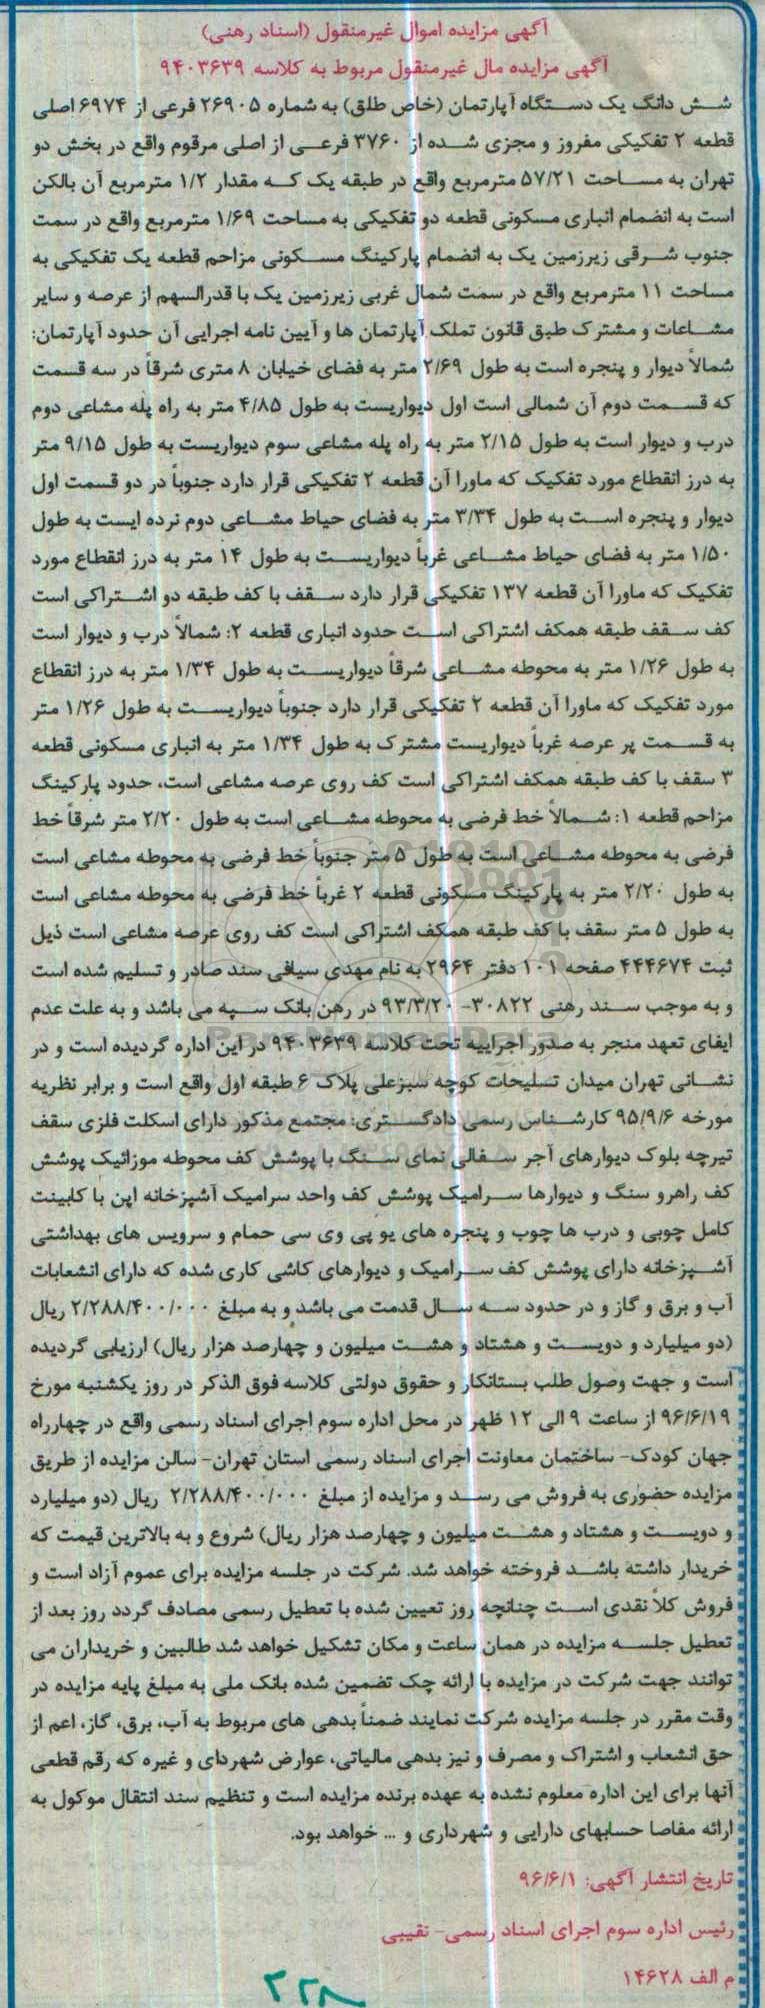 آگهی مزایده اموال غیرمنقول (اسناد رهنی)
آگهی مزایده مال غیرمنقول مربوط به کلاسه ۹۴۰۳۶۳۹
شش دانگ یک دستگاه آپارتمان (خاص طلق) به شماره ۲۶۹۰۵ فرعی از ۶۹۷۴ اصلی
قطعه ۲ تفکیکی مفروز و مجزی شده از ۳۷۶۰ فرعی از اصلی مرقوم واقع در بخش دو
تهران به مساحت ۵۷/۲۱ مترمربع واقع در طبقه یک که مقدار ۱/۲ مترمربع آن بالکن
است به انضمام انباری مسکونی قطعه دو تفکیکی به مساحت ۱/۶۹ مترمربع واقع در سمت
جنوب شرقی زیرزمین یک به انضمام پارکینگ مسکونی مزاحم قطعه یک تفکیکی به
مساحت ۱۱ مترمربع واقع در سمت شمال غربی زیرزمین یک با قدرالسهم از عرصه و سایر
مشاعات و مشترک طبق قانون تملک آپارتمان ها و آیین نامه اجرایی آن حدود آپارتمان:
شمالاً دیوار و پنجره است به طول ۲/۶۹ متر به فضای خیابان ۸ متری شرقاً در سه قسمت
که قسمت دوم آن شمالی است اول دیواریست به طول ۴/۸۵ متر به راه پله مشاعی دوم
درب و دیوار است به طول ۲/۱۵ متر به راه پله مشاعی سوم دیواریست به طول ۹/۱۵ متر
به درز انقطاع مورد تفکیک که ماورا آن قطعه ۲ تفکیکی قرار دارد جنوباً در دو قسمت اول
دیوار و پنجره است به طول ۳/۳۴ متر به فضای حیاط مشاعی دوم نرده ایست به طول
۱/۵۰ متر به فضای حیاط مشاعی غرباً دیواریست به طول ۱۴ متر به درز انقطاع مورد
تفکیک که ماورا آن قطعه ۱۳۷ تفکیکی قرار دارد سقف با کف طبقه دو اشتراکی است
کف سقف طبقه همکف اشتراکی است حدود انباری قطعه ۲: شمالاً درب و دیوار است
به طول ۱/۲۶ متر به محوطه مشاعی شرقاً دیواریست به طول ۱/۳۴ متر به درز انقطاع
مورد تفکیک که ماورا آن قطعه ۲ تفکیکی قرار دارد جنوباً دیواریست به طول ۱/۲۶ متر
به قسمت پر عرصه غرباً دیواریست مشترک به طول ۱/۳۴ متر به انباری مسکونی قطعه
۳ سقف با کف طبقه همکف اشتراکی است کف روی عرصه مشاعی است، حدود پارکینگ
مزاحم قطعه ۱: شمالاً خط فرضی به محوطه مشاعی است به طول ۲/۲۰ متر شرقاً خط
فرضی به محوطه مشاعی است به طول ۵ متر جنوباً خط فرضی به محوطه مشاعی است
به طول ۲/۲۰ متر به پارکینگ مسکونی قطعه ۲ غرباً خط فرضی به محوطه مشاعی است
به طول ۵ متر سقف با کف طبقه همکف اشتراکی است کف روی عرصه مشاعی است ذیل
ثبت ۴۴۴۶۷۴ صفحه ۱۰۱ دفتر ۲۹۶۴ به نام مهدی سیافی سند صادر و تسلیم شده است
و به موجب سند رهنی ۳۰۸۲۲- ۹۳/۳/۲۰ در رهن بانک سپه می باشد و به علت عدم
ایفای تعهد منجر به صدور اجراییه تحت کلاسه ۹۴۰۳۶۳۹ در این اداره گردیده است و در
نشانی تهران میدان تسلیحات کوچه سبزعلی پلاک ۶ طبقه اول واقع است و برابر نظریه
مورخه ۹۵/۹/۶ کارشناس رسمی دادگستری: مجتمع مذکور دارای اسکلت فلزی سقف
تیرچه بلوک دیوارهای آجر سفالی نمای سنگ با پوشش کف محوطه موزائیک پوشش
کف راهرو سنگ و دیوارها سرامیک پوشش کف واحد سرامیک آشپزخانه اپن با کابینت
کامل چوبی و درب ها چوب و پنجره های یو پی وی سی حمام و سرویس های بهداشتی
آشپزخانه دارای پوشش کف سرامیک و دیوارهای کاشی کاری شده که دارای انشعابات
آب و برق و گاز و در حدود سه سال قدمت می باشد و به مبلغ ۲/۲۸۸/۴۰۰/۰۰۰ ریال
(دو میلیارد و دویست و هشتاد و هشت میلیون و چهارصد هزار ریال) ارزیابی گردیده
است و جهت وصول طلب بستانکار و حقوق دولتی کلاسه فوق الذکر در روز یکشنبه مورخ
۹۶/۶/۱۹ از ساعت ۹ الی ۱۲ ظهر در محل اداره سوم اجرای اسناد رسمی واقع در چهارراه
جهان کودک- ساختمان معاونت اجرای اسناد رسمی استان تهران- سالن مزایده از طریق
مزایده حضوری به فروش می رسد و مزایده از مبلغ ۲/۲۸۸/۴۰۰/۰۰۰ ریال (دو میلیارد
و دویست و هشتاد و هشت میلیون و چهارصد هزار ریال) شروع و به بالاترین قیمت که
خریدار داشته باشد فروخته خواهد شد. شرکت در جلسه مزایده برای عموم آزاد است و
فروش کلاً نقدی است چنانچه روز تعیین شده با تعطیل رسمی مصادف گردد روز بعد از
تعطیل جلسه مزایده در همان ساعت و مکان تشکیل خواهد شد طالبین و خریداران می
توانند جهت شرکت در مزایده با ارائه چک تضمین شده بانک ملی به مبلغ پایه مزایده در
وقت مقرر در جلسه مزایده شرکت نمایند ضمناً بدهی های مربوط به آب، برق، گاز، اعم از
حق انشعاب و اشتراک و مصرف و نیز بدهی مالیاتی، عوارض شهردای و غیره که رقم قطعی
آنها برای این اداره معلوم نشده به عهده برنده مزایده است و تنظیم سند انتقال موکول به
ارائه مفاصا حسابهای دارایی و شهرداری و ... خواهد بود.
تاریخ انتشار آگهی: ۹۶/۶/۱
رئیس اداره سوم اجرای اسناد رسمی- نقیبی
م الف ۱۴۶۲۸
۲۲۸